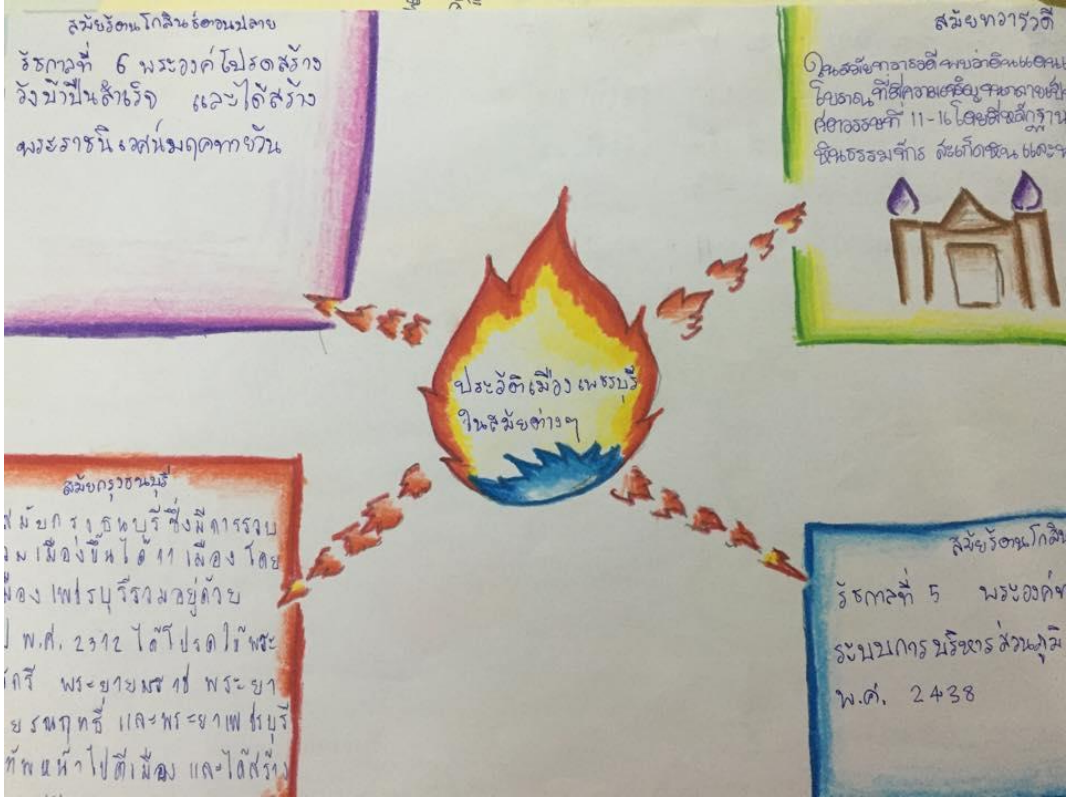 สมัยรัตนโกสินธ์ตอนปลาย
รัชกาลที่ 6 พระองค์โปรดสร้าง
วังบ้านปืนสำเร็จ และได้สร้าง
พระราชนิเวศน์มฤคทายวัน
สมัยทวารวดี
ในสมัยทวารวดี พบว่าดินแดน
โบราณ ที่มีความเจริญ
ศตวรรษที่ 11-16 โดยมีหลักฐาน
หินธรรมจักร สะเก็ดหิน และ
ประวัติเมืองเพชรบุรี
ในสมัยต่างๆ
สมัยกรุงธนบุรี
สมัยกรุงธนบุรี ซึ่งมีการรวบ
รวมเมืองขึ้นได้ 11 เมือง โดย
เมืองเพชรบุรีรวมอยู่ด้วย
พ.ศ. 2312 ได้โปรดให้พระ
จักรี พระยายมราช พระยา
และพระยาเพชรบุรี
ทัพหน้าไปตีเมือง และได้สร้าง
สมัยรัตนโกสิน
รัชกาลที่ 5 พระองค์
ระบบการบริหารส่วนภูมิ
พ.ศ. 2438